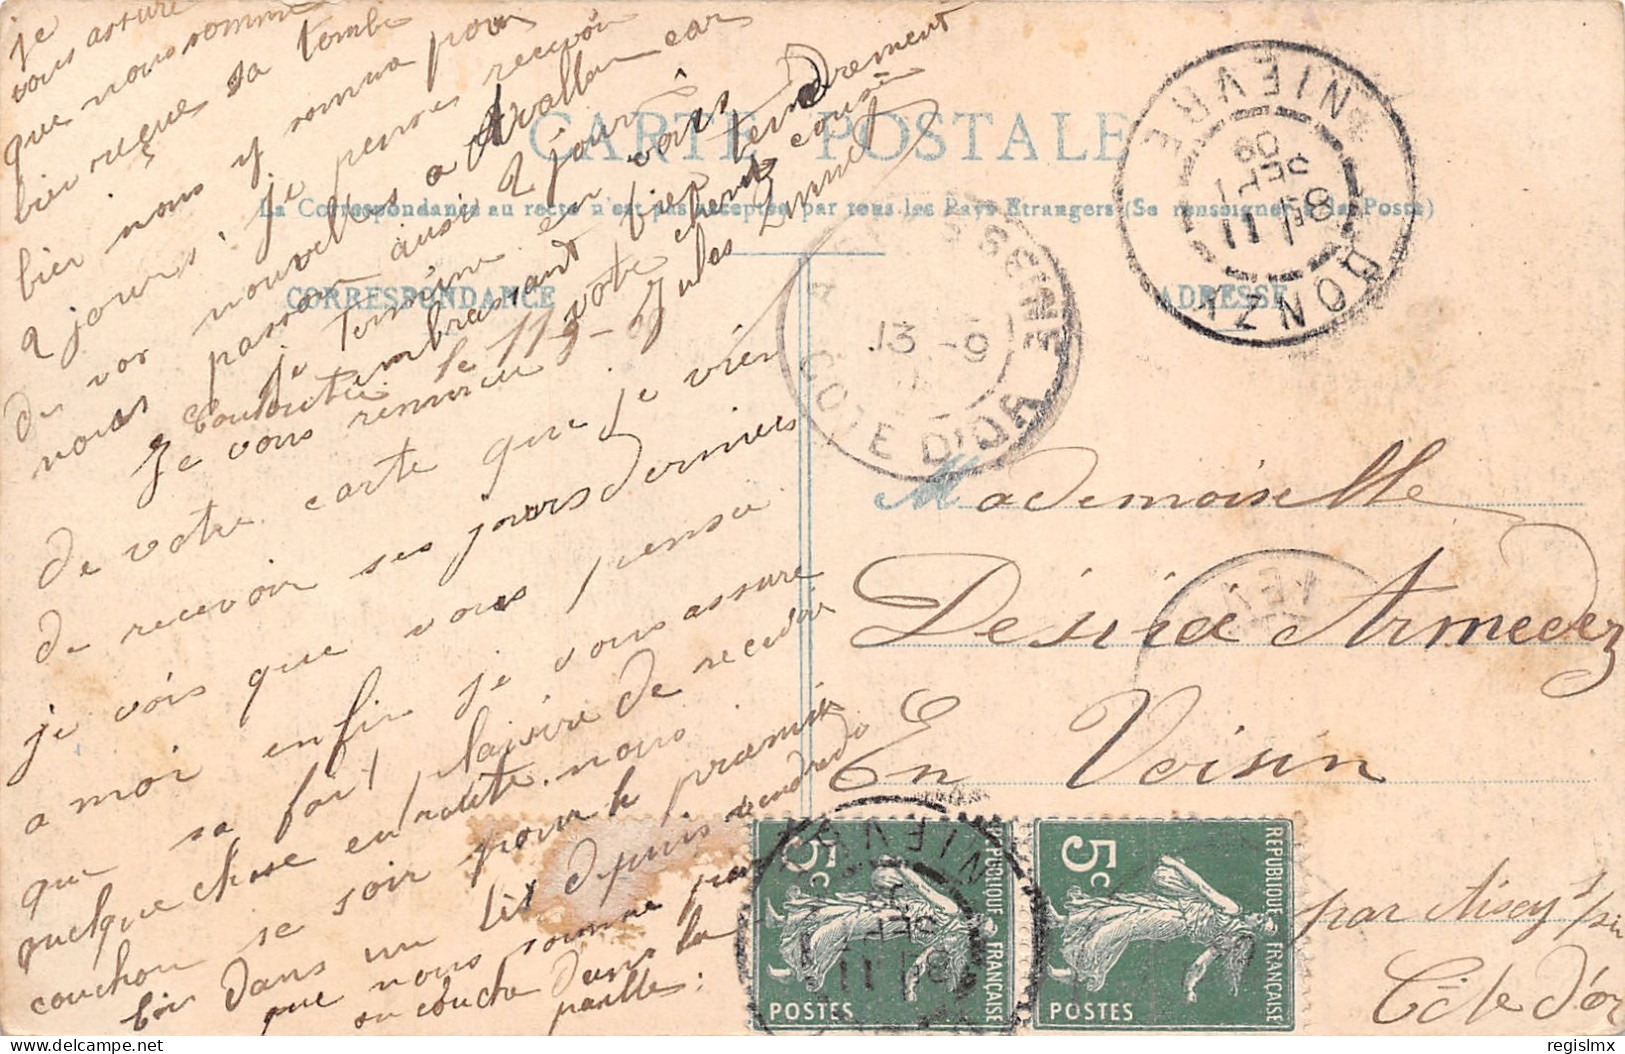 CARTE POSTALE
La Correspondance au recto n'est pas acceptée par tous les Pays Etrangers (Se renseigner à la Poste)
CORRESPONDANCE
ADRESSE
le 11-9-
Je vous remercie
de votre carte que je vien
de recevoir ses jours derniers
je vois que vous pensée
a moi enfin je vous assure
que sa fait plaisire de recevoir
quelque chose en route. nous
couchon se soir pour le premier
foi dans un lit depuis vendredo
que nous somme par
on couche dans la
paille:
je
vous assure
que nous somme
bien sa tombe
bien nous y somme pour
2 jours, je penses recevoir
de vos nouvelles a Avallon car
nous passon aussi 2 jours
je termine en vous
embrassant bien tendrement
votre cher cousin
Jules
Mademoiselle
Désirée Armedez
En Voisin
par Aisey s/
Côte d'or
DONZY
NIEVRE
11 SEPT 09
13 -9
COTE D'OR
NIEVRE
5c
REPUBLIQUE FRANÇAISE
POSTES
5c
REPUBLIQUE FRANÇAISE
POSTES
regislmx